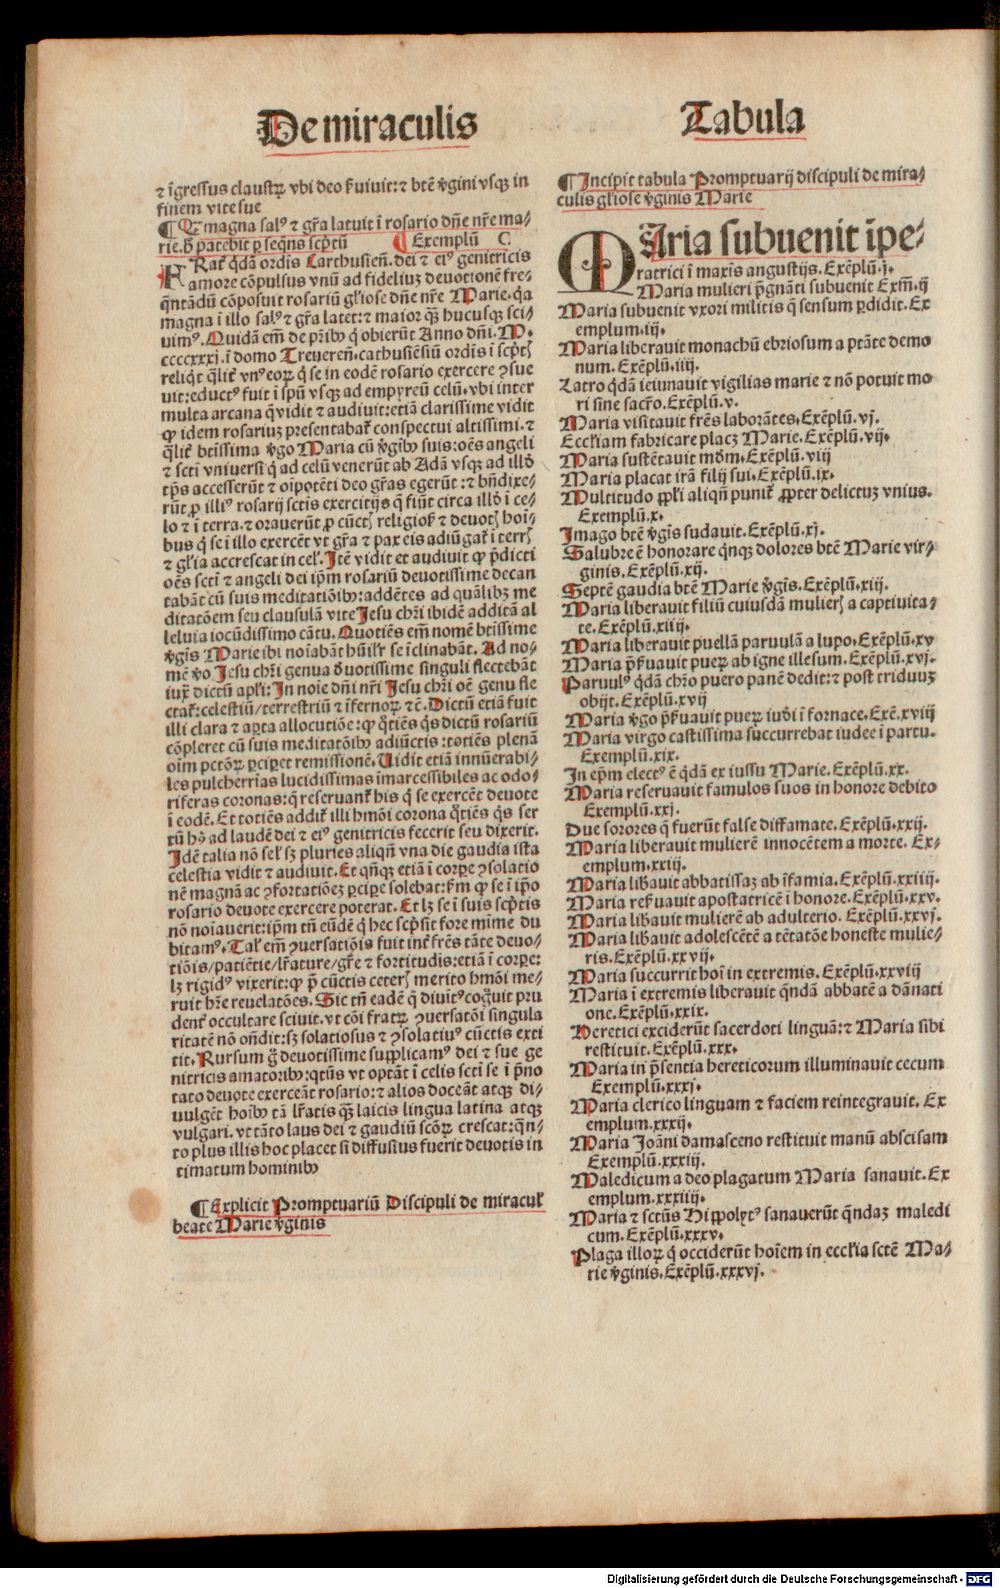 De miraculis
⁊ īgressus claustꝝ vbi deo ẜuiuit: ⁊ btē ṽgini vsqꝫ in
finem vite sue
¶ Q magna salꝰ ⁊ gr̄a latuit ī rosario dn̄e nr̄e ma-
rie. h̄ patebit ꝑ seq̄ns scp̄tū ¶ Exemplū C
FRat̄ q̄dā ordis Carthusieñ. dei ⁊ eiꝰ genitricis
amore cōpulsus vnū ad fideliuꝫ deuotionē fre-
q̄ntādū cōposuit rosariū gl̄iose dn̄e nr̄e Marie. q̄a
magna ī illo salꝰ ⁊ gr̄a latet: ⁊ maior qꝫ̄ hucusqꝫ sci-
uimꝰ. Quidā em̄ de p̄ribꝰ q̇ obierūt Anno dn̄i. M.
ccccxxxj. ī domo Treuereñ. cathusiēsiū ordis ī scp̄tꝭ
reliq̇t q̄lit̄ vnꝰ eoꝝ q̇ se in eodē rosario exercere ꝯsue
uit: eductꝰ fuit ī spū vsqꝫ ad empyreū celū. vbi inter
multa arcana q̄ vidit ⁊ audiuit: etiā clarissime vidit
ꝙ idem rosariuꝫ presentabat̄ conspectui altissimi. ⁊
q̄lit̄ btissima ṽgo Maria cū ṽgībꝰ suis: oēs angeli
⁊ scti vniuersi q̇ ad celū venerūt ab Adā vsqꝫ ad illd̄
tp̄s accesserūt ⁊ oīpotēti deo gr̄as egerūt: ⁊ bn̄dixe-
rūt ꝓ illiꝰ rosarij sctis exercitijs q̄ fiūt circa illd̄ ī ce-
lo ⁊ ī terra. ⁊ orauerūt ꝓ cūctꝭ religiosꝭ ⁊ deuotꝭ hoī-
bus q̇ se ī illo exercēt vt gr̄a ⁊ pax eis adiūgat̄ ī terrꝭ
⁊ gl̄ia accrescat in celꝭ. Itē vidit et audiuit ꝙ p̄dicti
oēs scti ⁊ angeli dei ip̄m rosariū deuotissime decan
tabāt cū suis meditatiōibꝰ: addētes ad quālibꝫ me
ditatōem seu clausulā vite Jesu chr̄i ibidē additā al
leluia iocūdissimo cātu. Quotiēs em̄ nomē btissime
ṽgīs Marie ibi noīabāt hūilr̄ se īclinabāt. Ad no-
mē ṽo Jesu chr̄i genua d̄uotissime singuli flectebāt
iuxͣ dictū apl̄i: In noīe dn̄i nr̄i Jesu chr̄i oē genu fle
ctat̄: celestiū/ terrestriū ⁊ īfernoꝝ ⁊c̄. Dictū etiā fuit
illi clara ⁊ apta allocutiōe: ꝙ q̄tiēs q̇s dictū rosariū
cōpleret cū suis meditatōibꝰ adiūctis: totiēs plenā
oīm pctōꝝ ꝑciꝑet remissionē. Uidit etiā innūerabi-
les pulcherrias lucidissimas īmarcessibiles ac odo-
riferas coronas: q̄ reseruant̄ his q̇ se exercēt deuote
ī eodē. Et totiēs addit̄ illi hmōi corona q̄tiēs q̇s ser
tū hꝰ ad laudē dei ⁊ eiꝰ genitricis fecerit seu dixerit.
Idē talia nō sel̄ sꝫ pluries aliqn̄ vna die gaudia ista
celestia vidit ⁊ audiuit. Et qn̄qꝫ etiā ī corꝑe ꝯsolatio
nē magnā ac ꝯfortatiōeꝫ ꝑciꝑe solebat: ẜm ꝙ se ī ip̄o
rosario deuote exercere poterat. Et lꝫ se ī suis scp̄tis
nō noīauerit: ip̄m tn̄ eūdē q̇ hec scp̄sit fore mime du
bitamꝰ. Tal̄ em̄ ꝯuersatiōis fuit int̄ fr̄es tāte deuo-
tiōis/ patiētie/ lr̄ature/ gr̄e ⁊ fortitudis: etiā ī corꝑe:
lꝫ rigidꝰ vixerit: ꝙ p̄ cūctis ceterꝭ merito hmōi me-
ruit hr̄e reuelatōes. Sic tn̄ eadē q̇ diuītꝰ cog̃uit pru
dent̄ occultare sciuit. vt cōi fratꝝ ꝯuersatōi singula
ritatē nō on̄dit: sꝫ solatiosus ⁊ ꝯsolatiuꝰ cūctis exti
tit. Rursum g̃ deuotissime supplicamꝰ dei ⁊ sue ge
nitricis amatoribꝰ: qtūs vt optāt ī celis scti se ī p̄no
tato deuote exerceāt rosario: ⁊ alios doceāt atqꝫ di-
uulgēt hoībꝰ tā lr̄atis qꝫ̄ laicis lingua latina atqꝫ
vulgari. vt tāto laus dei ⁊ gaudiū scōꝝ crescat: q̄n-
to plus illis hoc placet si diffusius fuerit deuotis in
timatum hominibꝰ
¶ Explicit Promptuariū Discipuli de miracul̄
beate Marie ṽginis
Tabula
¶ Incipit tabula Promptuarij discipuli de mira-
culis gl̄iose ṽginis Marie
MAria subuenit īpe-
ratrici ī maxīs angustijs. Exēplū. j.
Maria mulieri p̄gnāti subuenit Exm̄. ij
Maria subuenit vxori militis q̄ sensum ꝑdidit. Ex
emplum. iij.
Maria liberauit monachū ebriosum a ptāte demo
num. Exēplū. iiij.
Latro q̄dā ieiunauit vigilias marie ⁊ nō potuit mo
ri sine sacr̄o. Exēplū. v.
Maria visitauit fr̄es laborātes. Exēplū. vj.
Eccl̄iam fabricare placꝫ Marie. Exēplū. vij.
Maria sustētauit mōm. Exēplū. viij
Maria placat irā filij sui. Exēplū. ix.
Multitudo ppl̄i aliqn̄ punit̄ ꝓpter delictuꝫ vnius.
Exemplū. x.
Imago btē ṽgīs sudauit. Exēplū. xj.
Salubre ē honorare q̇nqꝫ dolores btē Marie vir-
ginis. Exēplū. xij.
Septē gaudia btē Marie ṽgīs. Exēplū. xiij.
Maria liberauit filiū cuiusdā mulierꝭ a captiuita-
te. Exēplū. xiiij.
Maria liberauit puellā paruulā a lupo. Exēplū. xv
Maria p̄ẜuauit pueꝝ ab igne illesum. Exēplū. xvj.
Paruulꝰ q̄dā chr̄o puero panē dedit: ⁊ post triduuꝫ
obijt. Exēplū. xvij
Maria ṽgo p̄ẜuauit pueꝝ iud̄i ī fornace. Exē. xviij
Maria virgo castissima succurrebat iudee ī partu.
Exemplū. xix.
In ep̄m electꝰ ē q̄dā ex iussu Marie. Exēplū. xx.
Maria reseruauit famulos suos in honore debito
Exemplū. xxj.
Due sorores q̄ fuerūt false diffamate. Exēplū. xxij.
Maria liberauit mulierē innocētem a morte. Ex-
emplum. xxiij.
Maria lib̄auit abbatissaꝫ ab īfamia. Exēplū. xxiiij.
Maria reẜuauit apostatricē ī honore. Exēplū. xxv.
Maria lib̄auit mulierē ab adulterio. Exēplū. xxvj.
Maria lib̄auit adolescētē a tētatōe honeste mulie-
ris. Exēplū. xxvij.
Maria succurrit hoī in extremis. Exēplū. xxviij
Maria ī extremis liberauit q̄ndā abbatē a dānati
one. Exēplū. xxix.
Heretici exciderūt sacerdoti linguā: ⁊ Maria sibi
restituit. Exēplū. xxx.
Maria in p̄sentia hereticorum illuminauit cecum
Exemplū. xxxj.
Maria clerico linguam ⁊ faciem reintegrauit. Ex
emplum. xxxij.
Maria Joāni damasceno restituit manū abscisam
Exemplū. xxxiij.
Maledicum a deo plagatum Maria sanauit. Ex
emplum. xxxiiij.
Maria ⁊ sctūs Hippolytꝰ sanauerūt q̄ndaꝫ maledi
cum. Exēplū. xxxv.
Plaga illoꝝ q̇ occiderūt hoīem in eccl̄ia sctē Ma-
rie ṽginis. Exēplū. xxxvj.
Digitalisierung gefördert durch die Deutsche Forschungsgemeinschaft - DFG